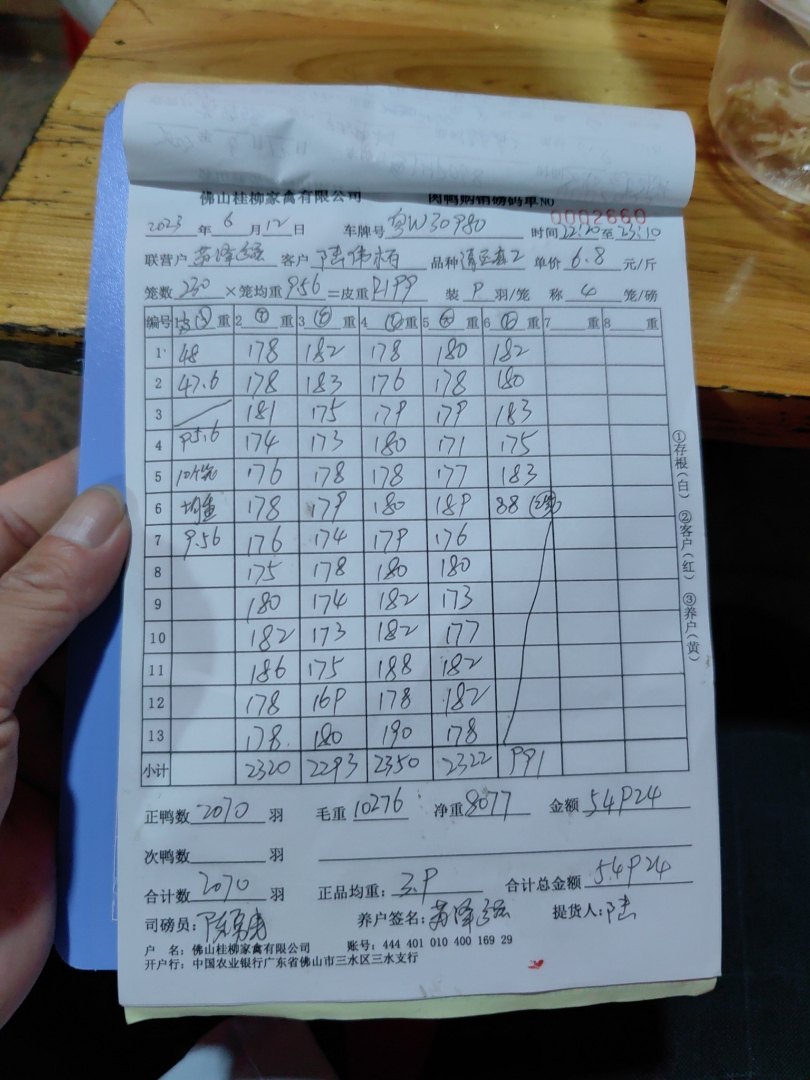 佛山桂柳家禽有限公司 肉鸭购销磅码单 NO 0002660
2023 年 6 月 12 日 车牌号 粤W30980 时间 22:20 至 23:10
联营户 苏泽强 客户 陆伟柏 品种 单价 6.8 元/斤
笼数 230 ×笼均重 9.56 =皮重 2199 装 9 羽/笼 称 4 笼/磅
编号 1 重 2 重 3 重 4 重 5 重 6 重 7 重 8 重
1 48 178 182 178 180 182
2 47.6 178 183 176 178 180
3 181 175 179 179 183
4 95.6 174 173 180 171 175
5 10个笼 176 178 178 177 183
6 均重 178 179 180 189 88
7 9.56 176 174 179 176
8 175 178 180 180
9 180 174 182 173
10 182 173 182 177
11 186 175 188 182
12 178 169 178 182
13 178 180 190 178
小计 2320 2293 2350 2322 991
正鸭数 2070 羽 毛重 10276 净重 8077 金额 54924
次鸭数 羽
合计数 2070 羽 正品均重: 3.9 合计总金额 54924
司磅员: 养户签名: 苏泽强 提货人: 陆
户 名: 佛山桂柳家禽有限公司 账号: 444 401 010 400 169 29
开户行: 中国农业银行广东省佛山市三水区三水支行
①存根(白) ②客户(红) ③养户(黄)